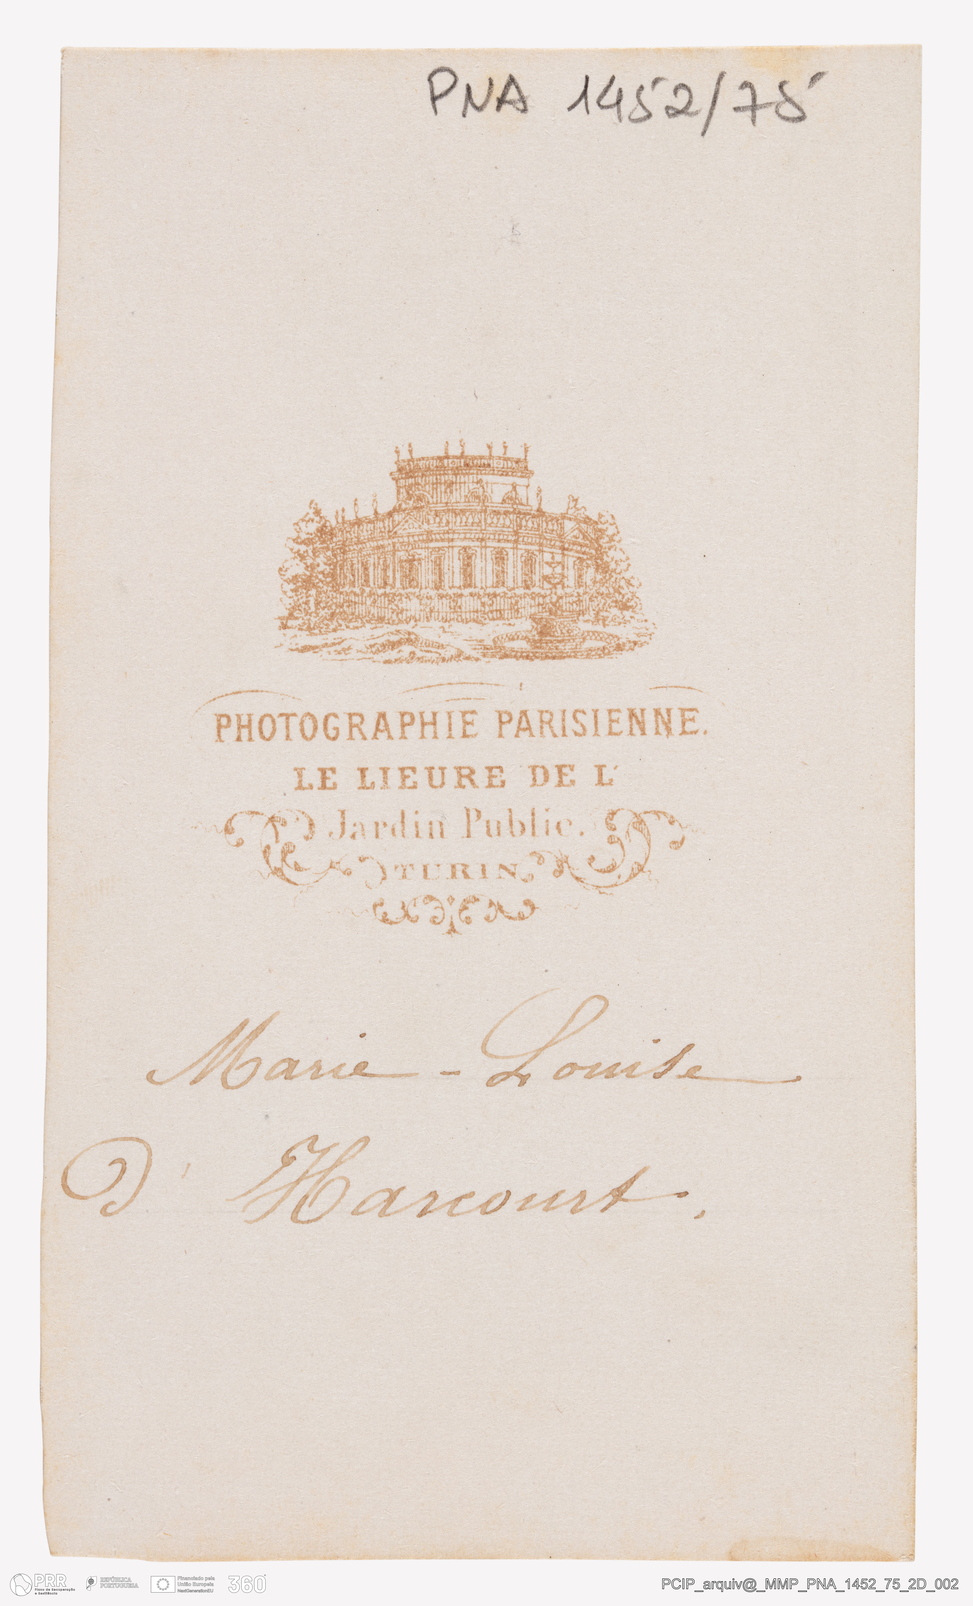 PNA 1452/75
PHOTOGRAPHIE PARISIENNE.
LE LIEURE DE L'
Jardin Public.
TURIN
Marie - Louise
D' Harcourt.
PRR
Plano de Recuperação
e Resiliência
REPÚBLICA
PORTUGUESA
Financiado pela
União Europeia
NextGenerationEU
360°
PCIP_arquiv@_MMP_PNA_1452_75_2D_002